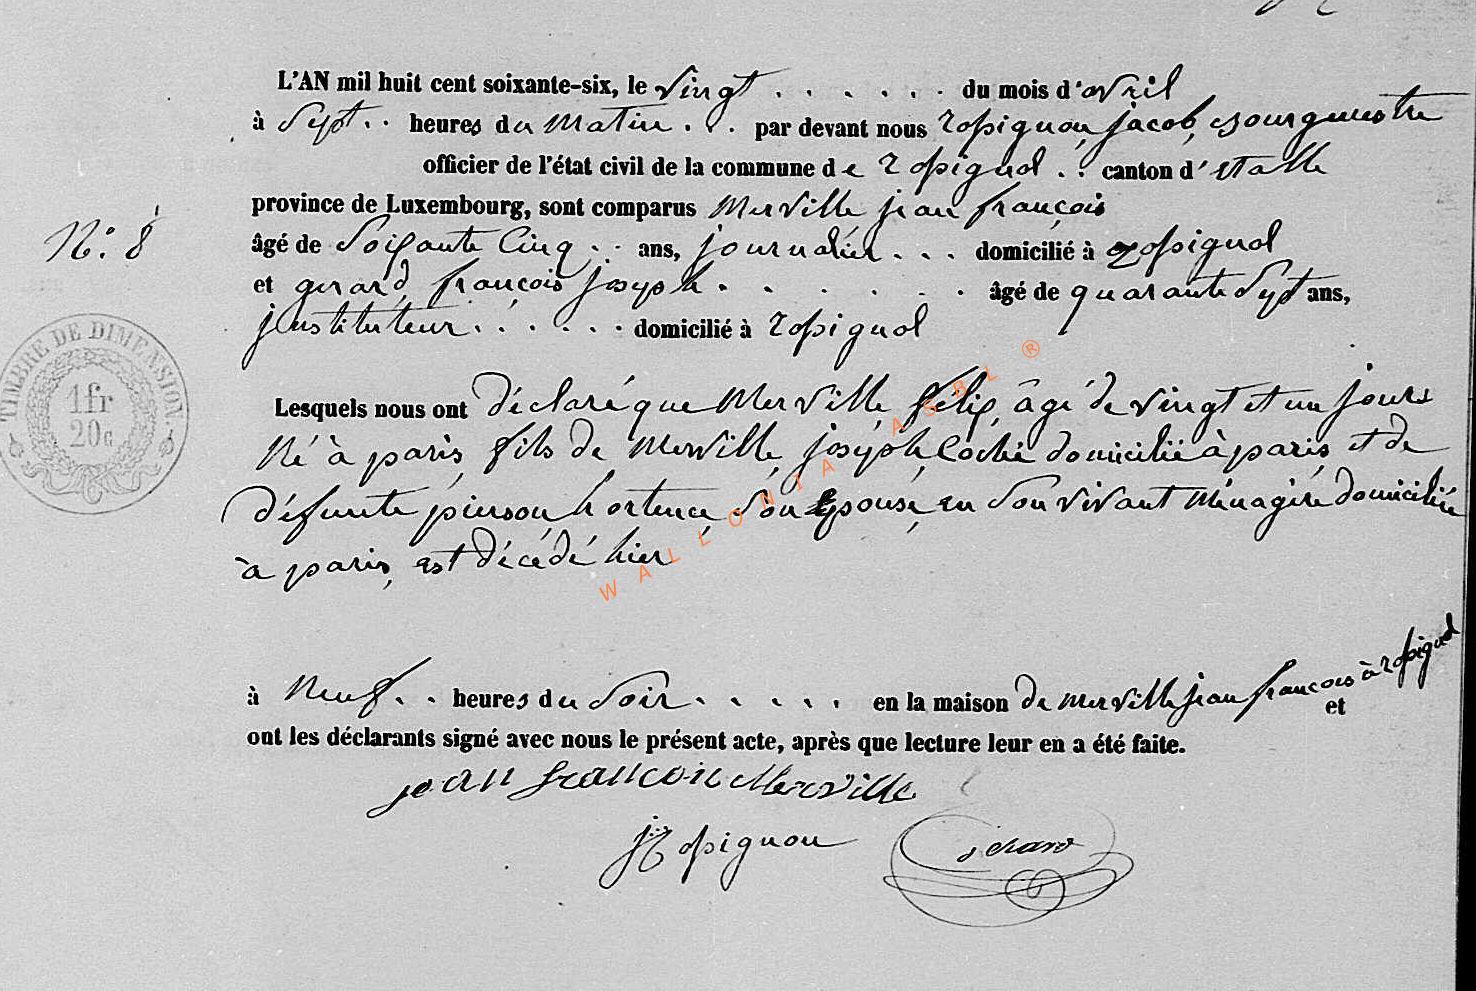 L'AN mil huit cent soixante-six, le vingt . . . . . . . du mois d'avril
à Sept . . heures du matin . . . par devant nous rossignon, jacob, bourgmestre
officier de l'état civil de la commune de rossignol . . canton d'etalle
province de Luxembourg, sont comparus Merville jean françois
N.° 8
âgé de Soissante Cinq . . ans, journalier . . . domicilié à rossignol
et gerard françois joseph . . . . . . . âgé de quarante Sept ans,
justituteur . . . . . . domicilié à rossignol
TIMBRE DE DIMENSION.
1 fr
20 c
Lesquels nous ont déclaré que Merville, felix, âgé de vingt et un jours
Né à paris, fils de Merville, joseph, Coché domicilié à paris, et de
défunte pierson, hortence, son Epouse, en Son vivant Ménagère domiciliée
à paris, est décédé hier
WALLONIA ASBL ®
à Neuf . . heures du Soir . . . . . en la maison de Merville jean françois à rossignol
et
ont les déclarants signé avec nous le présent acte, après que lecture leur en a été faite.
jean francois Merville
j rossignon Gérard